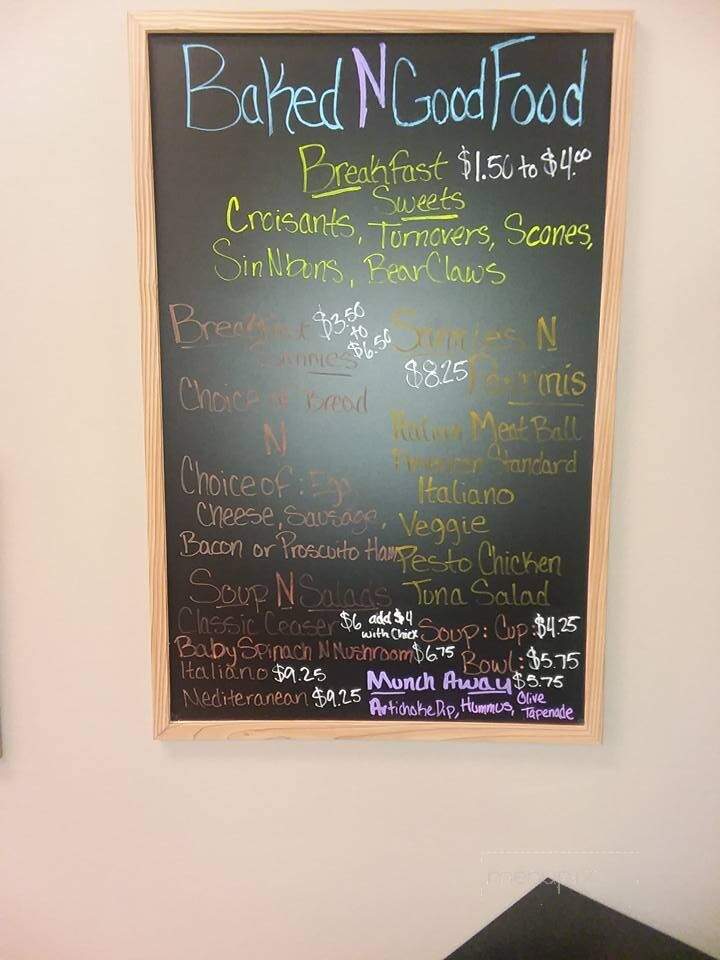 Baked N Good Food
Breakfast $1.50 to $4.00
Sweets
Croisants, Turnovers, Scones,
SinNbuns, Bear Claws
Breakfast $3.50 to $6.50
Sannies
Choice of Bread
N
Choice of: Egg
Cheese, Sausage,
Bacon or Proscuito Ham
Sannies N
$8.25 Paninis
Italian Meat Ball
American Standard
Italiano
Veggie
Pesto Chicken
Tuna Salad
Soup N Salads
Classic Ceaser $6 add $4
with Chick
Baby Spinach N Mushroom $6.75
Italiano $9.25
Mediteranean $9.25
Soup: Cup: $4.25
Bowl: $5.75
Munch Away $5.75
Artichoke Dip, Hummus, Olive
Tapenade
menupix